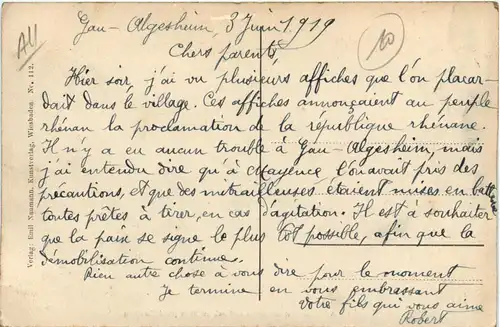 All
Gau-Algesheim, 3 Juin 1919
10
Chers parents,
Hier soir, j'ai vu plusieurs affiches que l'on placar-
dait dans le village. Ces affiches annonçaient au peuple
rhénan la proclamation de la république rhénane.
Il n'y a eu aucun trouble à Gau-Algesheim, mais
j'ai entendu dire qu'à Mayence l'on avait pris des
précautions, et que des mitrailleuses étaient mises en batterie
toutes prêtes à tirer, en cas d'agitation. Il est à souhaiter
que la paix se signe le plus tôt possible, afin que la
démobilisation continue.
Rien autre chose à vous dire pour le moment
Je termine en vous embrassant
Votre fils qui vous aime
Robert
Verlag: Emil Naumann, Kunstverlag, Wiesbaden. Nr. 112.